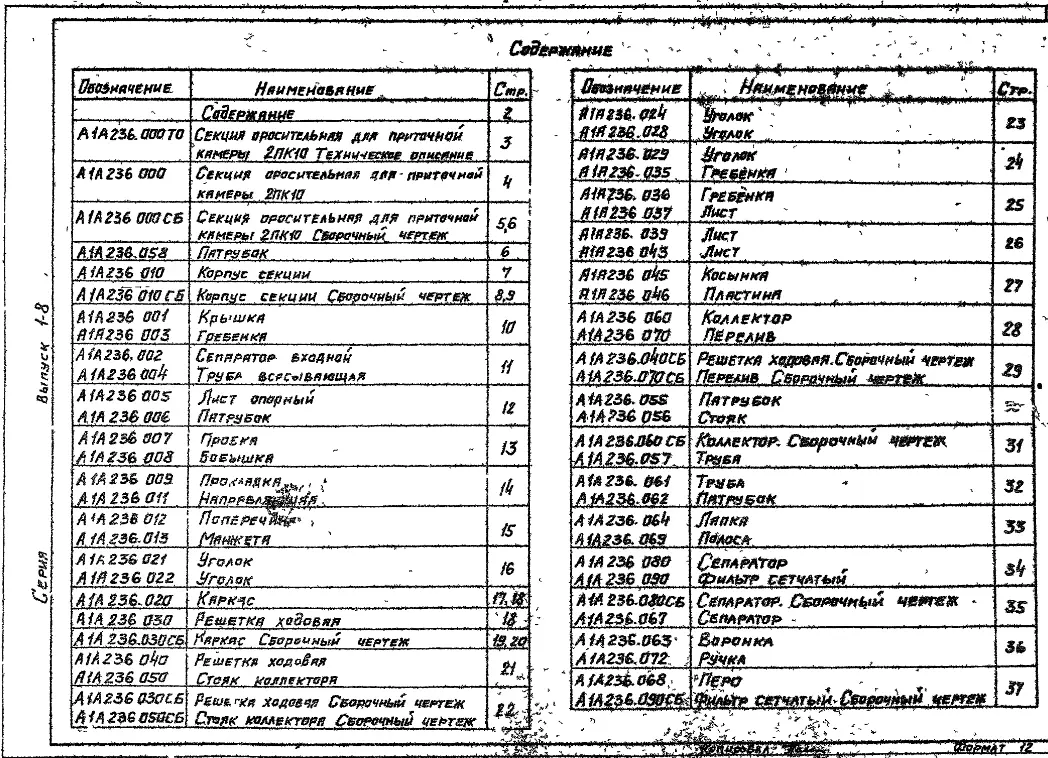 Содержание
Обозначение Наименование Стр.
Содержание 2
А1А236.000ТО Секция оросительная для приточной 3
камеры 2ПК10 Техническое описание
А1А236 000 Секция оросительная для приточной 4
камеры 2ПК10
А1А236 000СБ Секция оросительная для приточной 5,6
камеры 2ПК10 Сборочный чертеж
А1А236.058 Патрубок 6
А1А236 010 Корпус секции 7
А1А236 010СБ Корпус секции Сборочный чертеж 8,9
А1А236 001 Крышка 10
А1А236 003 Гребенка
А1А236.002 Сепаратор входной 11
А1А236 004 Труба всасывающая
А1А236 005 Лист опорный 12
А1А236 006 Патрубок
А1А236 007 Пробка 13
А1А236 008 Бобышка
А1А236 009 Прокладка 14
А1А236 011 Направляющая
А1А236 012 Поперечина 15
А1А236.013 Манжета
А1А236 021 Уголок 16
А1А236 022 Уголок
А1А236.020 Каркас 17,18
А1А236 030 Решетка ходовая 18
А1А236.030СБ Каркас Сборочный чертеж 19,20
А1А236 040 Решетка ходовая 21
А1А236 050 Стояк коллектора
А1А236 030СБ Решетка ходовая Сборочный чертеж 22
А1А236 050СБ Стояк коллектора Сборочный чертеж
Обозначение Наименование Стр.
А1А236.024 Уголок 23
А1А236.028 Уголок
А1А236.029 Уголок 24
А1А236.035 Гребёнка
А1А236.036 Гребёнка 25
А1А236 037 Лист
А1А236.039 Лист 26
А1А236 043 Лист
А1А236 045 Косынка 27
А1А236 046 Пластина
А1А236 060 Коллектор 28
А1А236 070 Перелив
А1А236.040СБ Решетка ходовая.Сборочный чертеж 29
А1А236.070СБ Перелив Сборочный чертеж
А1А236.055 Патрубок
А1А236 056 Стояк
А1А236.060СБ Коллектор. Сборочный чертеж 31
А1А236.057 Труба
А1А236.061 Труба 32
А1А236.062 Патрубок
А1А236.064 Лапка 33
А1А236.069 Полоса
А1А236 080 Сепаратор 34
А1А236 090 Фильтр сетчатый
А1А236.080СБ Сепаратор. Сборочный чертеж 35
А1А236.067 Сепаратор
А1А236.063 Воронка 36
А1А236.072 Ручка
А1А236.068 Перо 37
А1А236.090СБ Фильтр сетчатый.Сборочный чертеж
Серия Выпуск 1-8
Копировал Формат 12